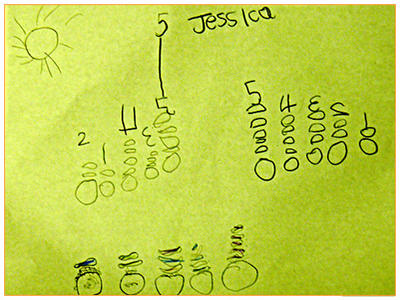 5 Jessica
2 1 4 3 5
5 4 3 2 1